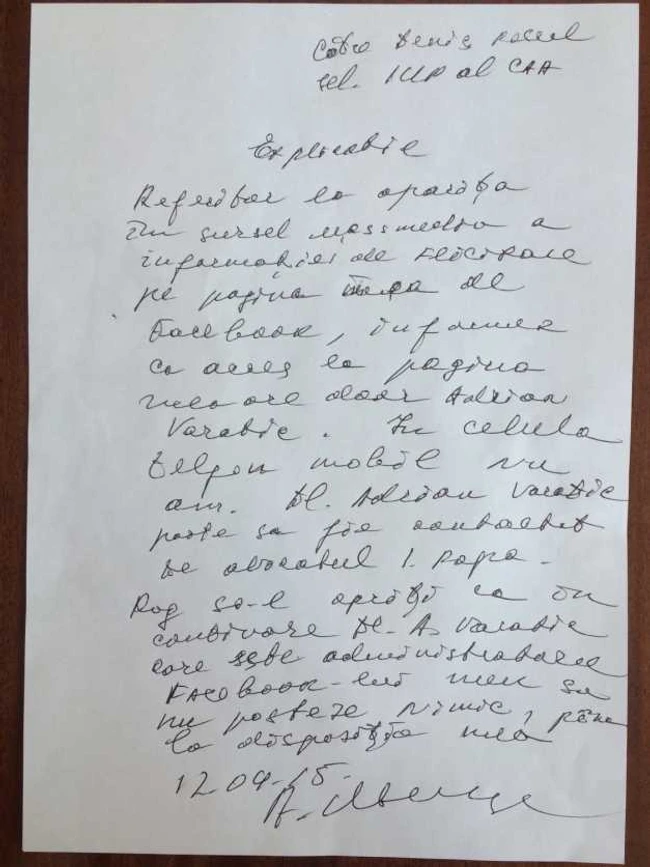 Către Deniș Pascal
șef. IUP al CAA
Explicație
Referitor la apariția
în sursel massmedia a
informației de felicitare
pe pagina mea de
Facebook, informez
ca acces la pagina
mea are doar Adrian
Varatic. In celula
telefon mobil nu
am. Dl. Adrian Varatic
poate sa fie contactat
de avocatul I. Popa.
Rog sa-l opriți ca în
continuare Dl. A. Varatic
care este administratorul
Facebook-lui meu sa
nu posteze nimic, pîna
la dispoziția mea
12 09.15.